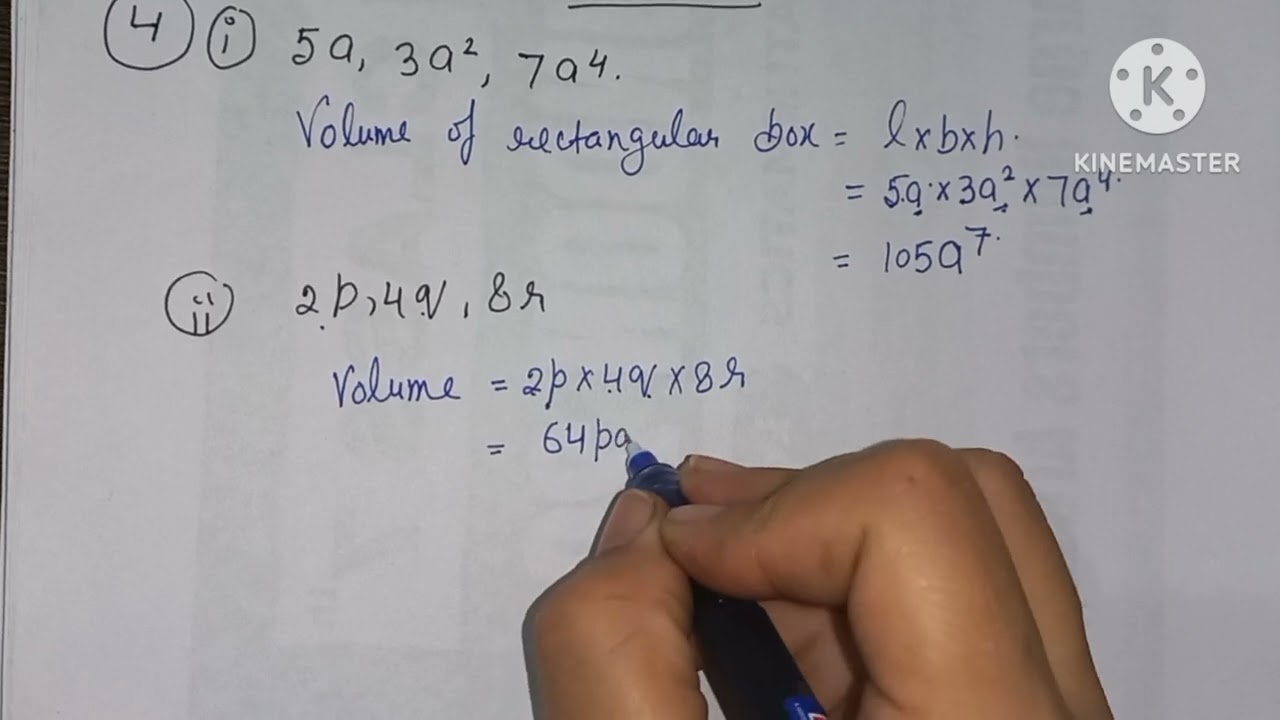 4 i 5a, 3a², 7a⁴.
Volume of rectangular box = l×b×h.
= 5a × 3a² × 7a⁴.
= 105a⁷.
ii 2p, 4q, 8r
Volume = 2p × 4q × 8r
= 64pq
K
KINEMASTER